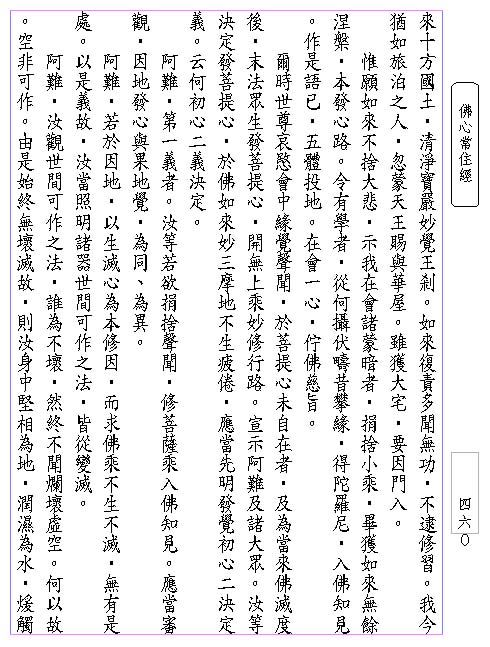 佛心常住經
來十方國土，清淨寶嚴妙覺王剎。如來復責多聞無功，不逮修習。我今
猶如旅泊之人，忽蒙天王賜與華屋。雖獲大宅，要因門入。
惟願如來不捨大悲，示我在會諸蒙暗者，捐捨小乘，畢獲如來無餘
涅槃，本發心路。令有學者，從何攝伏疇昔攀緣，得陀羅尼，入佛知見
。作是語已，五體投地。在會一心，佇佛慈旨。
爾時世尊哀愍會中緣覺聲聞，於菩提心未自在者，及為當來佛滅度
後，末法眾生發菩提心，開無上乘妙修行路。宣示阿難及諸大眾。汝等
決定發菩提心，於佛如來妙三摩地不生疲倦，應當先明發覺初心二決定
義。云何初心二義決定。
阿難，第一義者。汝等若欲捐捨聲聞，修菩薩乘入佛知見。應當審
觀，因地發心與果地覺，為同、為異。
阿難，若於因地，以生滅心為本修因，而求佛乘不生不滅，無有是
處。以是義故，汝當照明諸器世間可作之法，皆從變滅。
阿難，汝觀世間可作之法，誰為不壞，然終不聞爛壞虛空。何以故
。空非可作。由是始終無壞滅故，則汝身中堅相為地，潤濕為水，煖觸
四六○